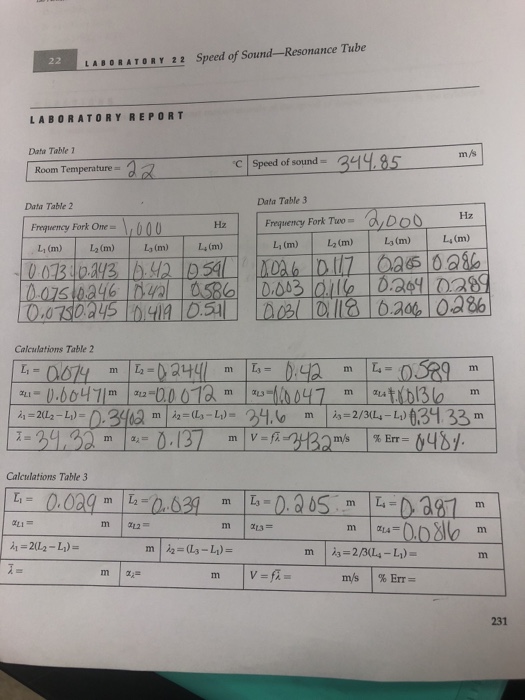 22 LABORATORY 22 Speed of Sound—Resonance Tube
LABORATORY REPORT
Data Table 1
Room Temperature = 22 °C Speed of sound = 344.85 m/s
Data Table 2
Frequency Fork One = 1,000 Hz
L₁ (m) L₂ (m) L₃ (m) L₄ (m)
0.073 0.243 0.42 0.591
0.075 0.246 0.421 0.586
0.075 0.245 0.419 0.591
Data Table 3
Frequency Fork Two = 2,000 Hz
L₁ (m) L₂ (m) L₃ (m) L₄ (m)
0.026 0.117 0.205 0.286
0.003 0.116 0.204 0.289
0.031 0.118 0.206 0.286
Calculations Table 2
L̄₁ = 0.074 m L̄₂ = 0.2441 m L̄₃ = 0.42 m L̄₄ = 0.589 m
αL1 = 0.00471 m αL2 = 0.0072 m αL3 = 0.0047 m αL4 = m
λ₁ = 2(L̄₂ – L̄₁) = 0.3402 m λ₂ = (L̄₃ – L̄₁) = 34.6 m λ₃ = 2/3(L̄₄ – L̄₁) 0.3433 m
λ̄ = 34.32 m αλ = 0.137 m V = fλ̄ = 3432 m/s % Err = 0.48%
Calculations Table 3
L̄₁ = 0.029 m L̄₂ = 0.039 m L̄₃ = 0.205 m L̄₄ = 0.287 m
αL1 = m αL2 = m αL3 = m αL4 = 0.0816 m
λ₁ = 2(L̄₂ – L̄₁) = m λ₂ = (L̄₃ – L̄₁) = m λ₃ = 2/3(L̄₄ – L̄₁) = m
λ̄ = m αλ = m V = fλ̄ = m/s % Err =
231